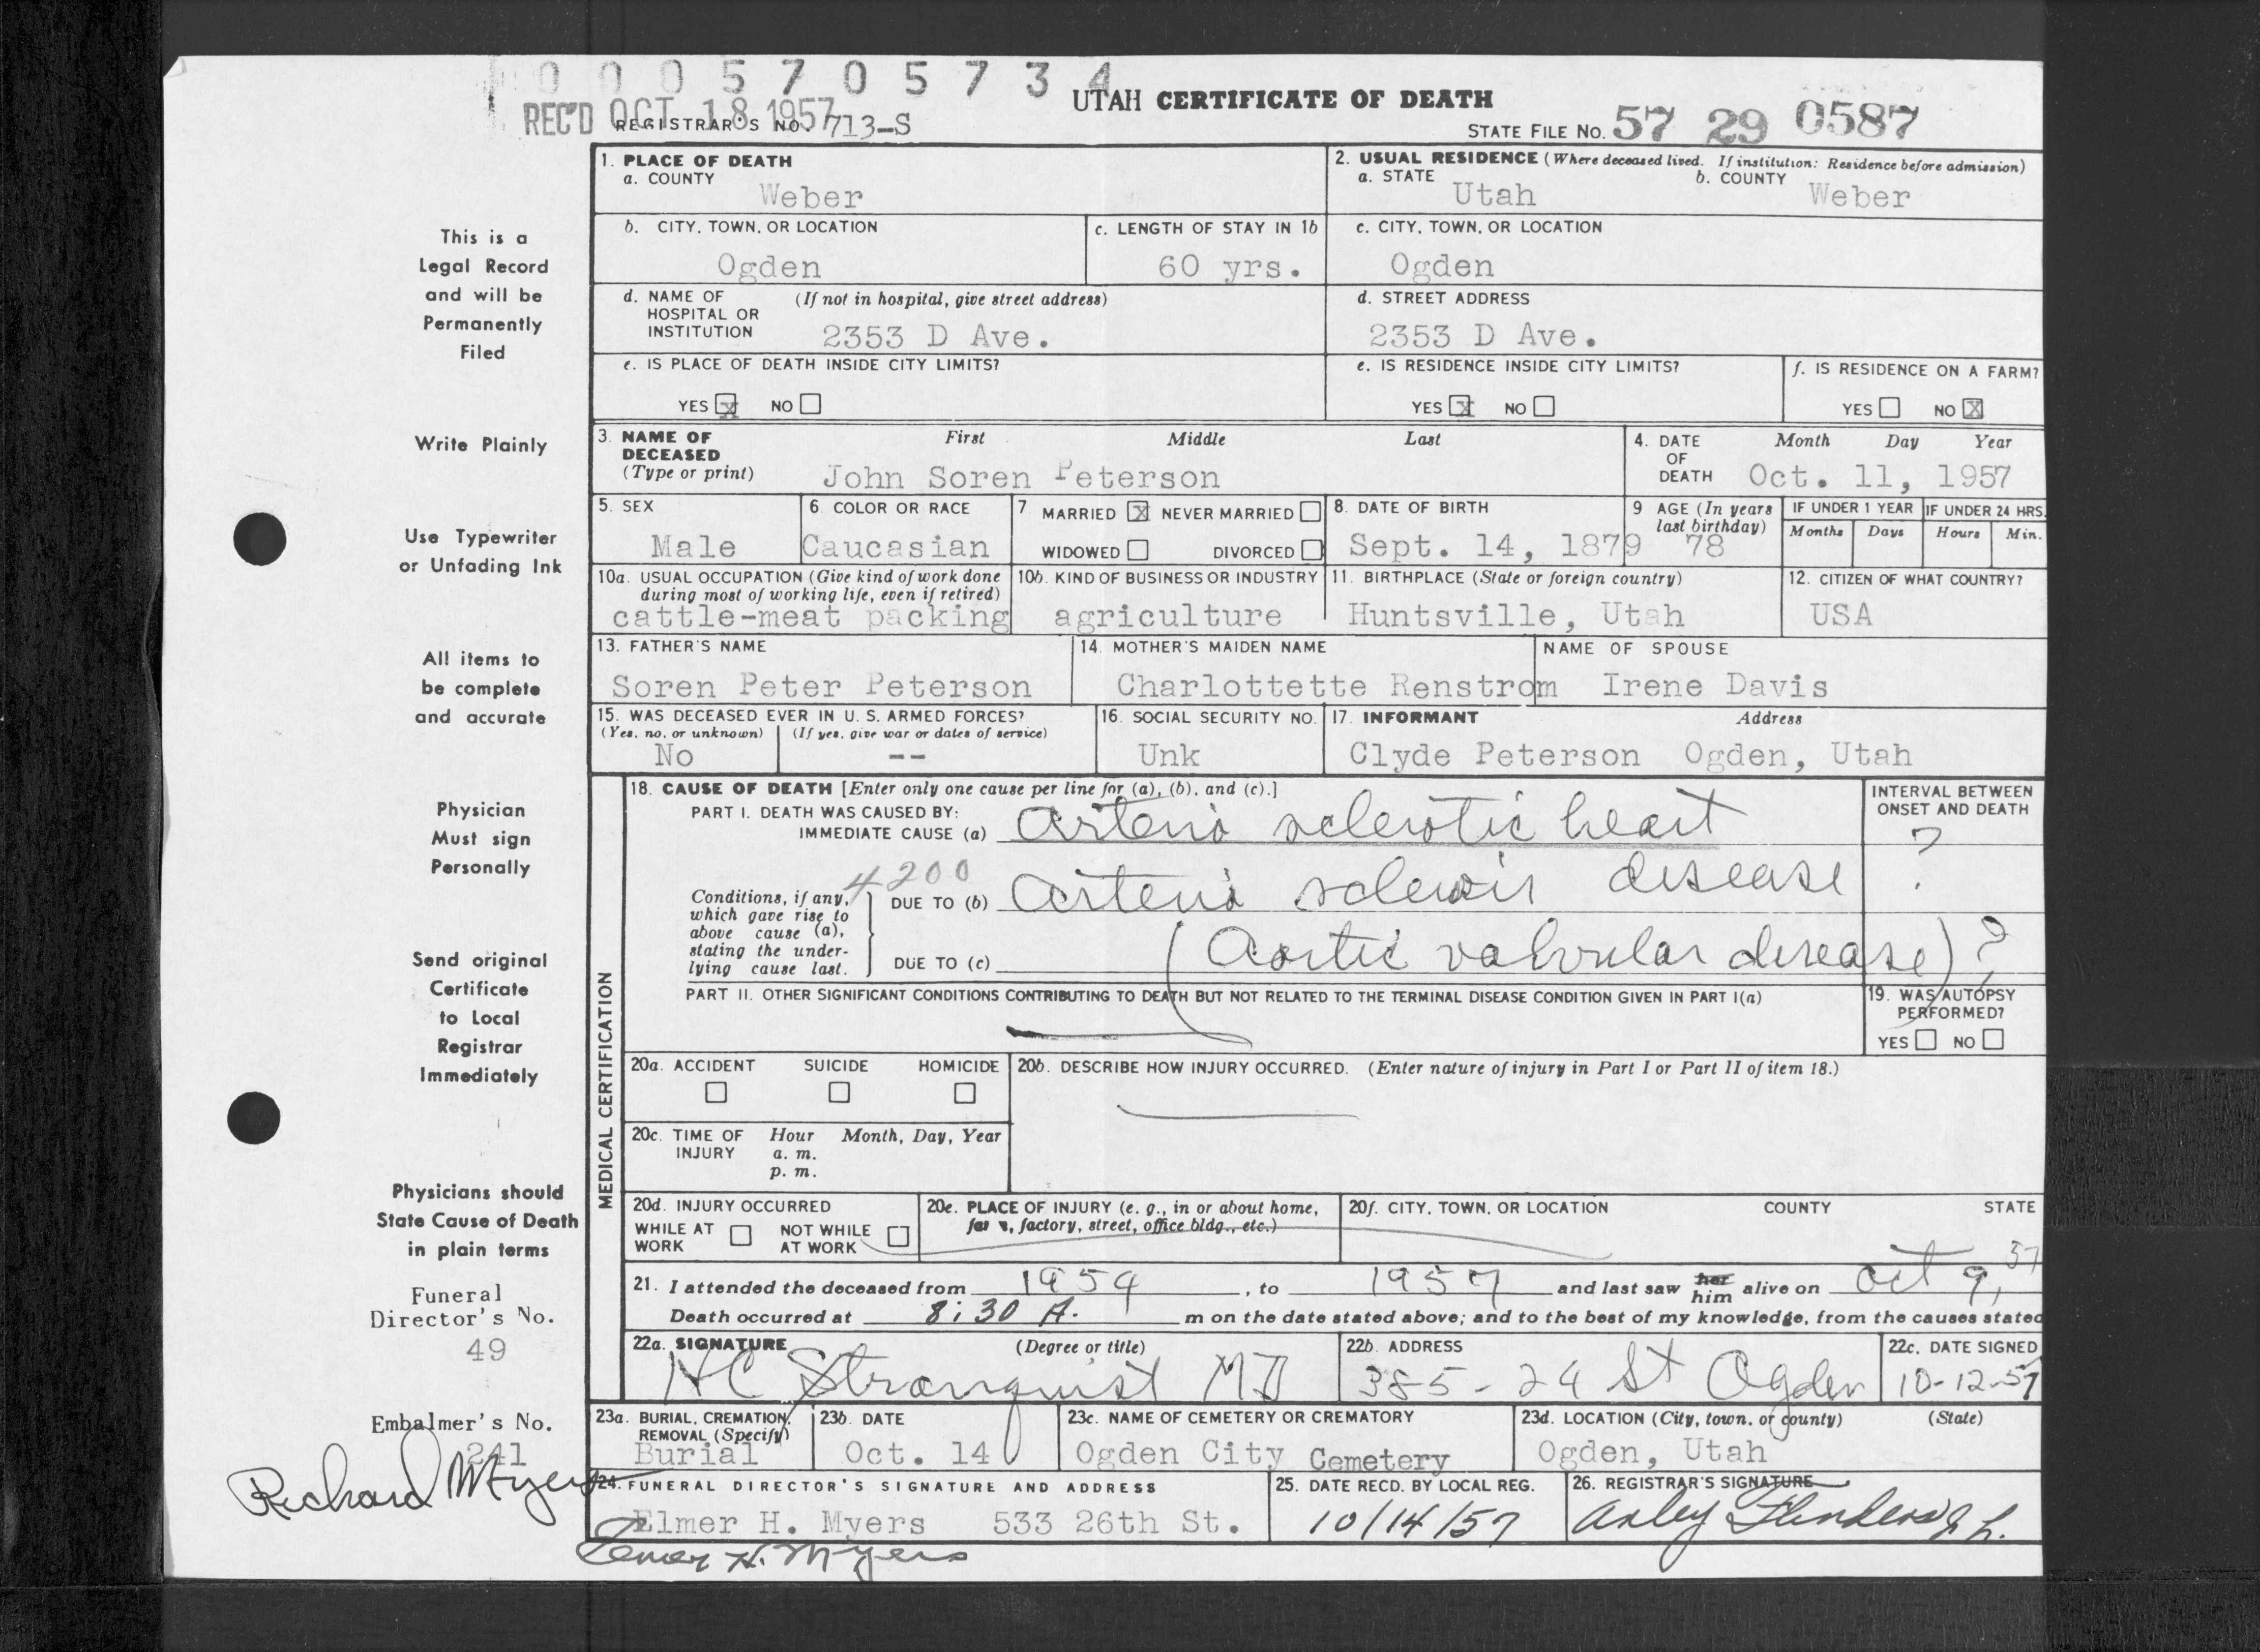 0005705734
UTAH CERTIFICATE OF DEATH
REC'D OCT 18 1957
REGISTRAR'S NO. 713-S
STATE FILE NO. 57 29 0587
This is a
Legal Record
and will be
Permanently
Filed
Write Plainly
Use Typewriter
or Unfading Ink
All items to
be complete
and accurate
Physician
Must sign
Personally
Send original
Certificate
to Local
Registrar
Immediately
Physicians should
State Cause of Death
in plain terms
Funeral
Director's No.
49
Embalmer's No.
241
Richard Myers
1. PLACE OF DEATH
a. COUNTY
Weber
2. USUAL RESIDENCE (Where deceased lived. If institution: Residence before admission)
a. STATE b. COUNTY
Utah Weber
b. CITY, TOWN, OR LOCATION
Ogden
c. LENGTH OF STAY IN 1b
60 yrs.
c. CITY, TOWN, OR LOCATION
Ogden
d. NAME OF HOSPITAL OR INSTITUTION (If not in hospital, give street address)
2353 D Ave.
d. STREET ADDRESS
2353 D Ave.
e. IS PLACE OF DEATH INSIDE CITY LIMITS?
YES X NO
e. IS RESIDENCE INSIDE CITY LIMITS?
YES X NO
f. IS RESIDENCE ON A FARM?
YES NO X
3. NAME OF DECEASED (Type or print)
First Middle Last
John Soren Peterson
4. DATE OF DEATH
Month Day Year
Oct. 11, 1957
5. SEX
Male
6 COLOR OR RACE
Caucasian
7 MARRIED X NEVER MARRIED
WIDOWED DIVORCED
8. DATE OF BIRTH
Sept. 14, 1879
9 AGE (In years last birthday)
78
IF UNDER 1 YEAR
Months Days
IF UNDER 24 HRS.
Hours Min.
10a. USUAL OCCUPATION (Give kind of work done during most of working life, even if retired)
cattle-meat packing
10b. KIND OF BUSINESS OR INDUSTRY
agriculture
11. BIRTHPLACE (State or foreign country)
Huntsville, Utah
12. CITIZEN OF WHAT COUNTRY?
USA
13. FATHER'S NAME
Soren Peter Peterson
14. MOTHER'S MAIDEN NAME
Charlottette Renstrom
NAME OF SPOUSE
Irene Davis
15. WAS DECEASED EVER IN U. S. ARMED FORCES?
(Yes, no, or unknown) (If yes, give war or dates of service)
No --
16. SOCIAL SECURITY NO.
Unk
17. INFORMANT Address
Clyde Peterson Ogden, Utah
MEDICAL CERTIFICATION
18. CAUSE OF DEATH [Enter only one cause per line for (a), (b), and (c).]
INTERVAL BETWEEN ONSET AND DEATH
PART I. DEATH WAS CAUSED BY:
IMMEDIATE CAUSE (a) Arterio sclerotic heart ?
4200
disease
Conditions, if any, which gave rise to above cause (a), stating the underlying cause last.
DUE TO (b) Arterio sclerosis
DUE TO (c) (Aortic valvular disease) ?
PART II. OTHER SIGNIFICANT CONDITIONS CONTRIBUTING TO DEATH BUT NOT RELATED TO THE TERMINAL DISEASE CONDITION GIVEN IN PART I(a)
19. WAS AUTOPSY PERFORMED?
YES NO
20a. ACCIDENT SUICIDE HOMICIDE
20b. DESCRIBE HOW INJURY OCCURRED. (Enter nature of injury in Part I or Part II of item 18.)
20c. TIME OF INJURY Hour Month, Day, Year
a. m.
p. m.
20d. INJURY OCCURRED
WHILE AT WORK NOT WHILE AT WORK
20e. PLACE OF INJURY (e. g., in or about home, farm, factory, street, office bldg., etc.)
20f. CITY, TOWN, OR LOCATION COUNTY STATE
21. I attended the deceased from 1954, to 1957 and last saw her him alive on Oct 9, 57
Death occurred at 8:30 A. m on the date stated above; and to the best of my knowledge, from the causes stated
22a. SIGNATURE (Degree or title)
HC Stranquist MD
22b. ADDRESS
385-24 St Ogden
22c. DATE SIGNED
10-12-57
23a. BURIAL, CREMATION, REMOVAL (Specify)
Burial
23b. DATE
Oct. 14
23c. NAME OF CEMETERY OR CREMATORY
Ogden City Cemetery
23d. LOCATION (City, town, or county) (State)
Ogden, Utah
24. FUNERAL DIRECTOR'S SIGNATURE AND ADDRESS
Elmer H. Myers 533 26th St.
Elmer H. Myers
25. DATE RECD. BY LOCAL REG.
10/14/57
26. REGISTRAR'S SIGNATURE